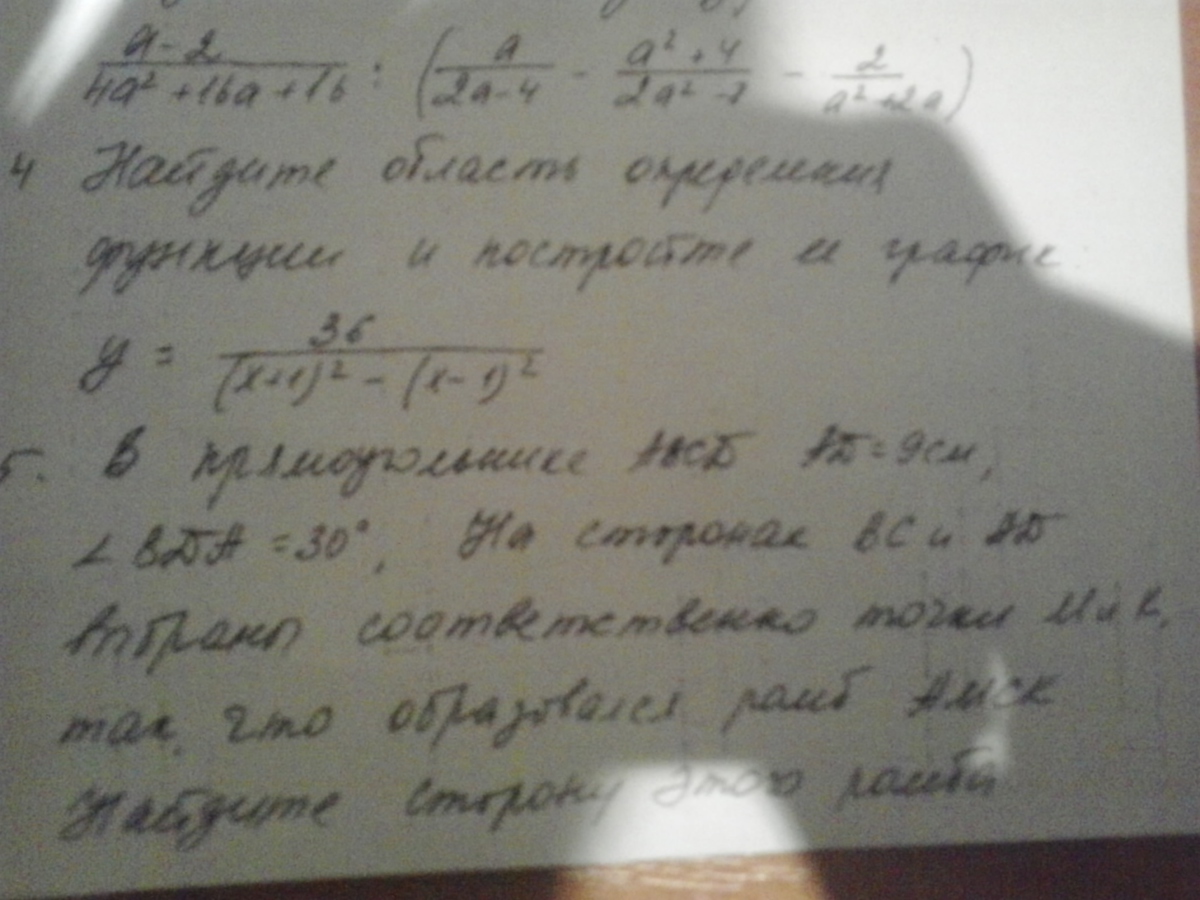 a-2 / 4a² + 16a + 16 : (a / 2a-4 - a² + 4 / 2a² - - 2 / a² + 2a)
4 Найдите область определения
функции и постройте и график
y = 36 / (x+1)² - (x-1)²
5. В прямоугольнике ABCD AD = 9 см,
∠ BDA = 30°, На сторонах BC и AD
выбраны соответственно точки M и K,
так, что образовался ромб AMCK
Найдите сторону этого ромба